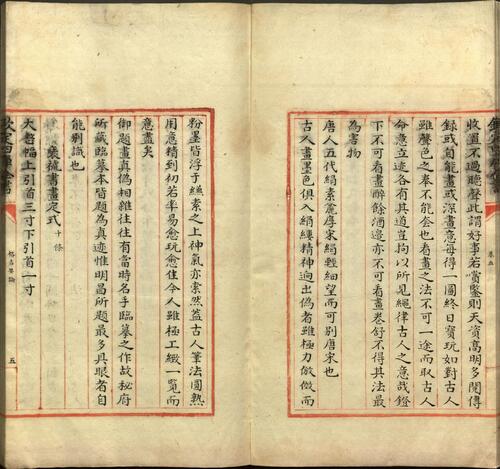 收置不過聽聲此謂好事若賞鑒則天資高明多閱傳
錄或自能畫或深畫意每得一圖終日寶玩如對古人
雖聲色之奉不能奪也看畫之法不可一途而取古人
命意立迹各有其道豈拘以所見繩律古人之意哉鐙
下不可看畫醉餘酒邊亦不可看畫卷舒不得其法最
為害物
唐人五代絹素麤厚宋絹輕細望而可別唐宋也
古人畫墨色俱入絹縷精神迥出偽者雖極力倣做而
卷五
粉墨皆浮于縑素之上神氣亦索然蓋古人筆法圓熟
用意精到初若率易愈玩愈佳今人雖極工緻一覽而
意盡矣
御題畫真偽相雜往往有當時名手臨摹之作故秘府
所藏臨摹本皆題為真迹惟明昌所題最多具眼者自
能別識也
裝褫書畫定式 十條
大整幅上引首三寸下引首一寸
欽定四庫全書
五